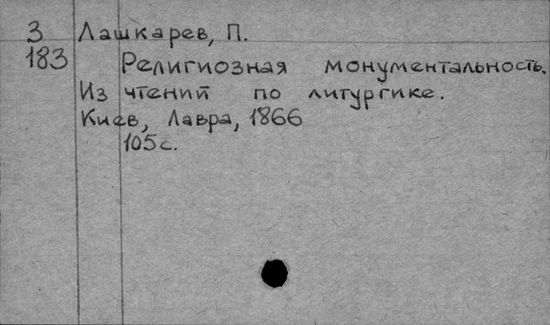 3 Лашкарев, П.
183 Религиозная монументальность.
Из чтений по литургике.
Киев, Лавра, 1866
105 с.